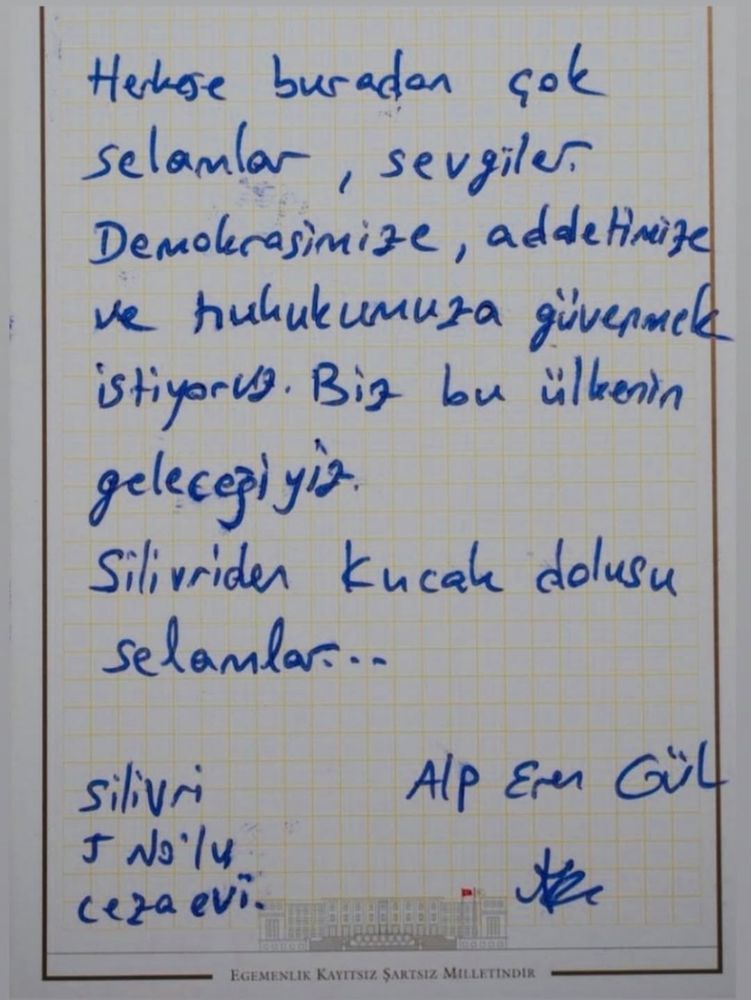 Herkese buradan çok
selamlar, sevgiler.
Demokrasimize, addetimize
ve hukukumuza güvenmek
istiyoruz. Biz bu ülkenin
geleceğiyiz.
Silivriden Kucak dolusu
selamlar...
Alp Eren GÜL
Silivri
5 No'lu
cezaevi.
EGEMENLİK KAYITSIZ ŞARTSIZ MİLLETİNDİR